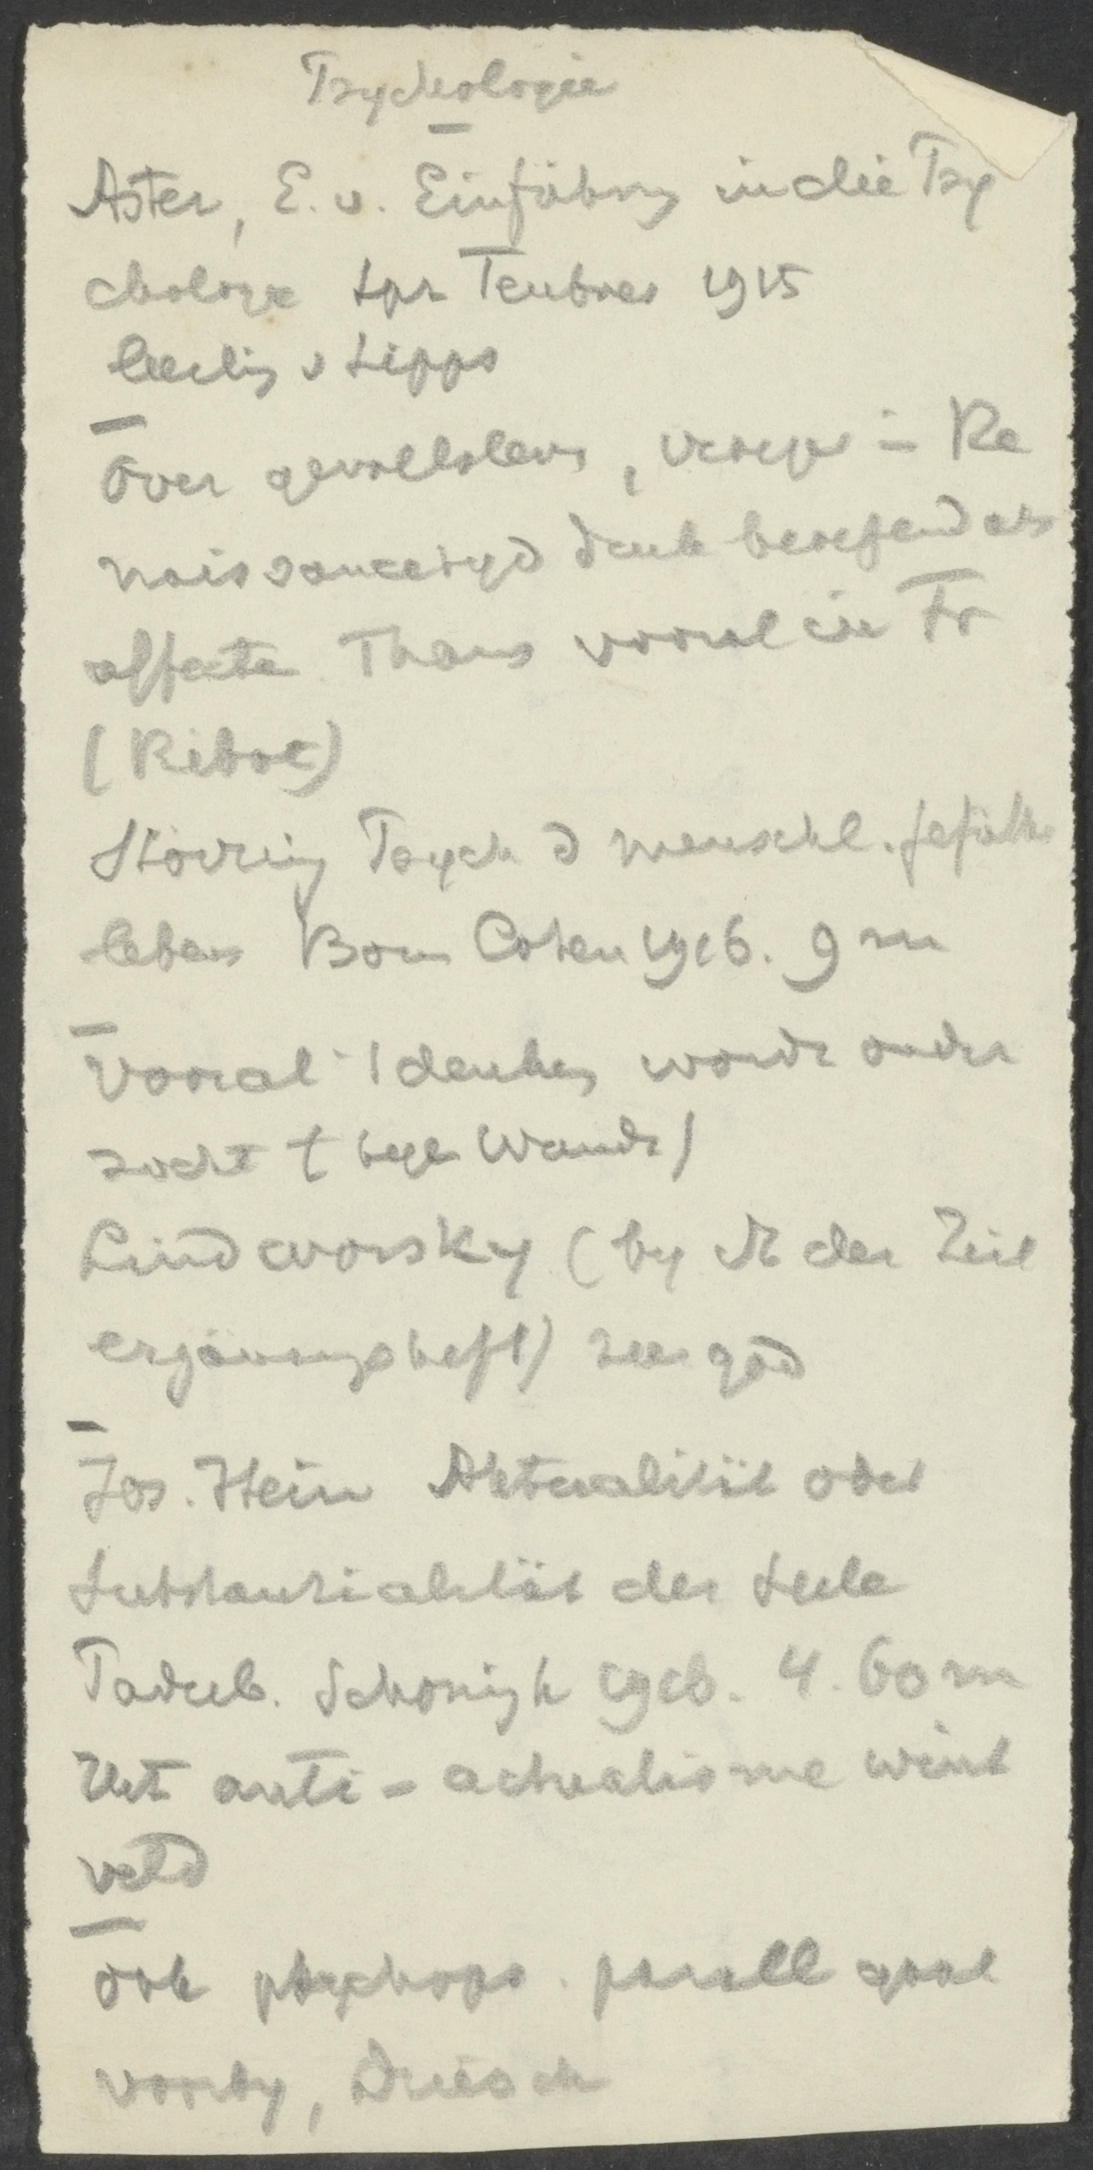 Psychologie
Aster, E. v. Einführung in die Psy
chologie Lpz Teubner 1915
leerling v Lipps
Over gevoelsleven, vroeger in Re
naissancetyd druk beoefend als
affecten Thans vooral in Fr
(Ribot)
Störring Psych d menschl. gefühls
lebens Bonn Cohen 1916. 9 m
Vooral 't denken wordt onder
zocht (tegen Wundt)
Lindworsky (by St der Zeit
ergänzungsheft) zeer goed
Jos. Hein Aktualität oder
Substanzialität der Seele
Paderb. Schöningh 1916. 4.60 m
Het anti-actualisme wint
veld
Ook psychops. parall gaat
voorby, Driesch